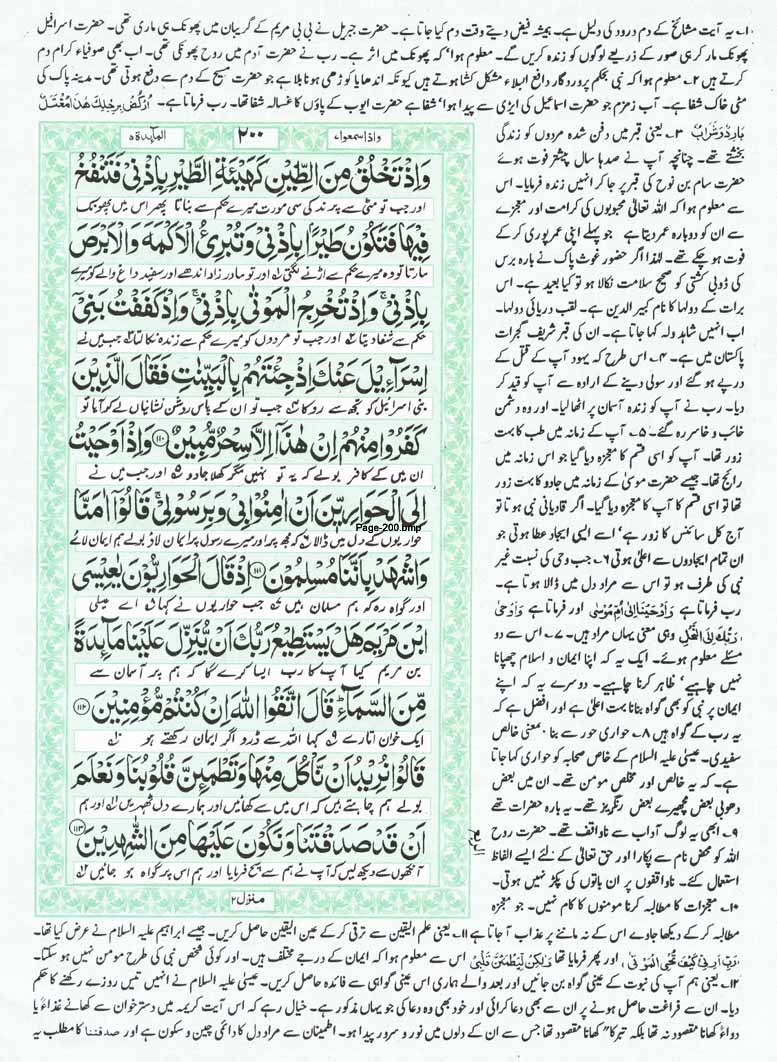 ۱۔ یہ آیت مشائخ کے دم درود کی دلیل ہے۔ ہمیشہ فیض دیتے وقت دم کیا جاتا ہے۔ حضرت جبریل نے بی بی مریم کے گریبان میں پھونک ہی ماری تھی۔ حضرت اسرافیل
پھونک مار کر ہی صور کے ذریعے لوگوں کو زندہ کریں گے۔ معلوم ہوا' کہ پھونک میں اثر ہے۔ رب نے حضرت آدم میں روح پھونکی تھی۔ اب بھی صوفیاء کرام دم
کرتے ہیں ۲۔ معلوم ہوا کہ نبی بحکم پروردگار دافع البلاء مشکل کشا ہوتے ہیں کیونکہ اندھا یا کوڑھی ہونا بلا ہے جو حضرت مسیح کے دم سے دفع ہوتی تھی۔ مدینہ پاک کی
مٹی خاک شفا ہے۔ آب زمزم جو حضرت اسماعیل کی ایڑی سے پیدا ہوا' شفا ہے حضرت ایوب کے پاؤں کا غسالہ شفا تھا۔ رب فرماتا ہے۔ اُرْكُضْ بِرِجْلِكَ هٰذَا مُغْتَسَلٌ
بَارِدٌ وَّشَرَابٌ ۳۔ یعنی قبر میں دفن شدہ مردوں کو زندگی
بخشتے تھے۔ چنانچہ آپ نے صدہا سال پیشتر فوت ہوئے
حضرت سام بن نوح کی قبر پر جا کر انہیں زندہ فرمایا۔ اس
سے معلوم ہوا کہ اللہ تعالیٰ محبوبوں کی کرامت اور معجزے
سے ان کو دوبارہ عمر دیتا ہے جو پہلے اپنی عمر پوری کر کے
فوت ہو چکے تھے۔ لہٰذا اگر حضور غوث پاک نے بارہ برس
کی ڈوبی کشتی کو صحیح سلامت نکالا ہو تو کیا بعید ہے۔ اس
برات کے دولہا کا نام کبیر الدین ہے۔ لقب دریائی دولہا۔
اب انہیں شاہ دولہ کہا جاتا ہے۔ ان کی قبر شریف گجرات
پاکستان میں ہے۔ ۴۔ اس طرح کہ یہود آپ کے قتل کے
درپے ہو گئے اور سولی دینے کے ارادہ سے آپ کو قید کر
دیا۔ رب نے آپ کو زندہ آسمان پر اٹھا لیا۔ اور وہ دشمن
خائب و خاسر رہ گئے۔ ۵۔ آپ کے زمانہ میں طب کا بہت
زور تھا۔ آپ کو اسی قسم کا معجزہ دیا گیا جو اس زمانہ میں
رائج تھا۔ جیسے حضرت موسیٰ کے زمانہ میں جادو کا بہت زور
تھا تو اسی قسم کا آپ کا معجزہ دیا گیا۔ اگر قادیانی نبی ہوتا تو
آج کل سائنس کا زور ہے' اسے ایسی ایجاد عطا ہوتی جو
ان تمام ایجادوں سے اعلیٰ ہوتی ۶۔ جب وحی کی نسبت غیر
نبی کی طرف ہو تو اس سے مراد دل میں ڈالنا ہوتا ہے۔
رب فرماتا ہے وَاَوْحَيْنَا اِلٰى اُمِّ مُوْسٰى اور فرماتا ہے وَاَوْحٰى
رَبُّكَ اِلَى النَّحْلِ وہی معنی یہاں مراد ہیں۔ ۷۔ اس سے دو
مسئلے معلوم ہوئے۔ ایک یہ کہ اپنا ایمان و اسلام چھپانا
نہیں چاہیے' ظاہر کرنا چاہیے۔ دوسرے یہ کہ اپنے
ایمان پر نبی کو بھی گواہ بنانا بہت اعلیٰ ہے اور افضل ہے کہ
یہ رب کے گواہ ہیں ۸۔ حواری حور سے بنا۔ بمعنی خالص
سفیدی۔ عیسیٰ علیہ السلام کے خاص صحابہ کو حواری کہا جاتا
ہے۔ کہ یہ خالص اور مخلص مومن تھے۔ ان میں بعض
دھوبی بعض مچھیرے بعض رنگریز تھے۔ یہ بارہ حضرات تھے
۹۔ ابھی یہ لوگ آداب سے ناواقف تھے۔ حضرت روح
اللہ کو محض نام سے پکارا اور حق تعالیٰ کے لئے ایسے الفاظ
استعمال کئے۔ ناواقفوں پر ان باتوں کی پکڑ نہیں ہوتی۔
۱۰۔ معجزات کا مطالبہ کرنا مومنوں کا کام نہیں۔ جو معجزہ
واذاسمعوا۷
۲۰۰
المآئدة۵
وَاِذْ تَخْلُقُ مِنَ الطِّيْنِ كَهَيْئَةِ الطَّيْرِ بِاِذْنِيْ فَتَنْفُخُ
اور جب تو مٹی سے پرند کی سی مورت میرے حکم سے بناتا پھر اس میں پھونک
فِيْهَا فَتَكُوْنُ طَيْرًۢا بِاِذْنِيْ وَتُبْرِئُ الْاَكْمَهَ وَالْاَبْرَصَ
مارتا تو وہ میرے حکم سے اڑنے لگتی اور تو مادر زاد اندھے اور سفید داغ والے کو میرے
بِاِذْنِيْ ۚ وَاِذْ تُخْرِجُ الْمَوْتٰى بِاِذْنِيْ ۚ وَاِذْ كَفَفْتُ بَنِيْٓ
حکم سے شفا دیتا اور جب تو مردوں کو میرے حکم سے زندہ نکالتا اور جب میں نے
اِسْرَآءِيْلَ عَنْكَ اِذْ جِئْتَهُمْ بِالْبَيِّنٰتِ فَقَالَ الَّذِيْنَ
بنی اسرائیل کو تجھ سے روکا جب تو ان کے پاس روشن نشانیاں لے کر آیا تو
كَفَرُوْا مِنْهُمْ اِنْ هٰذَآ اِلَّا سِحْرٌ مُّبِيْنٌ ۱۱۰ وَاِذْ اَوْحَيْتُ
ان میں کے کافر بولے کہ یہ تو نہیں مگر کھلا جادو اور جب میں نے
اِلَى الْحَوَارِيّٖنَ اَنْ اٰمِنُوْا بِيْ وَبِرَسُوْلِيْ ۚ قَالُوْٓا اٰمَنَّا
Page-200.bmp
حواریوں کے دل میں ڈالا کہ مجھ پر اور میرے رسول پر ایمان لاؤ بولے ہم ایمان لائے
وَاشْهَدْ بِاَنَّنَا مُسْلِمُوْنَ ۱۱۱ اِذْ قَالَ الْحَوَارِيُّوْنَ يٰعِيْسَى
اور گواہ رہ کہ ہم مسلمان ہیں جب حواریوں نے کہا اے عیسیٰ
ابْنَ مَرْيَمَ هَلْ يَسْتَطِيْعُ رَبُّكَ اَنْ يُّنَزِّلَ عَلَيْنَا مَآئِدَةً
بن مریم کیا آپ کا رب ایسا کرے گا کہ ہم پر آسمان سے
مِّنَ السَّمَآءِ ۭ قَالَ اتَّقُوا اللّٰهَ اِنْ كُنْتُمْ مُّؤْمِنِيْنَ ۱۱۲
ایک خوان اتارے کہا اللہ سے ڈرو اگر ایمان رکھتے ہو
قَالُوْا نُرِيْدُ اَنْ نَّاْكُلَ مِنْهَا وَتَطْمَئِنَّ قُلُوْبُنَا وَنَعْلَمَ
بولے ہم چاہتے ہیں کہ اس میں سے کھائیں اور ہمارے دل ٹھہریں اور ہم
اَنْ قَدْ صَدَقْتَنَا وَنَكُوْنَ عَلَيْهَا مِنَ الشّٰهِدِيْنَ ۱۱۳
آنکھوں سے دیکھ لیں کہ آپ نے ہم سے سچ فرمایا اور ہم اس پر گواہ ہو جائیں
منزل۲
مطالبہ کر کے دیکھا جاوے اس کے نہ ماننے پر عذاب آ جاتا ہے ۱۱۔ یعنی علم الیقین سے ترقی کر کے عین الیقین حاصل کریں۔ جیسے ابراہیم علیہ السلام نے عرض کیا تھا۔
رَبِّ اَرِنِيْ كَيْفَ تُحْيِ الْمَوْتٰى، اور پھر فرمایا تھا وَلٰكِنْ لِّيَطْمَئِنَّ قَلْبِيْ اس سے معلوم ہوا کہ ایمان کے درجے مختلف ہیں۔ اور کوئی شخص نبی کی طرح مومن نہیں ہو سکتا۔
۱۲۔ یعنی ہم آپ کی نبوت کے عینی گواہ بن جائیں اور بعد والے ہماری اس عینی گواہی سے فائدہ حاصل کریں۔ عیسیٰ علیہ السلام نے انہیں تیس روزے رکھنے کا حکم
دیا۔ ان سے فراغت حاصل ہونے پر ان سے بھی دعا کرائی اور خود بھی وہ دعا کی جو یہاں مذکور ہے۔ خیال رہے کہ اس آیت کریمہ میں دسترخوان سے کھانے غذاءً یا
دواءً کھانا مقصود نہ تھا بلکہ تبرکاً کھانا مقصود تھا جس سے ان کے دلوں میں نور و سرور پیدا ہو۔ اطمینان سے مراد دل کا دائمی چین و سکون ہے اور صدقتنا کا مطلب یہ